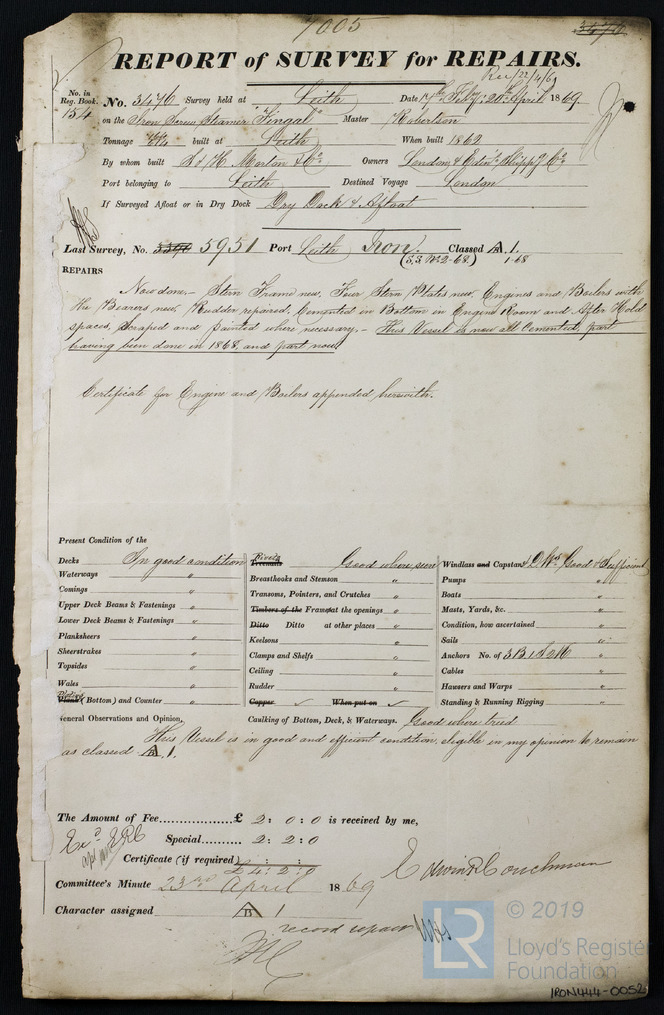 7005
REPORT of SURVEY for REPAIRS.
Rec 22/4/69
No. in Reg. Book. 154
No. 3476 Survey held at Leith Date 17th Feby, 20th April 1869
on the Iron Screw Steamer "Fingal" Master Robertson
Tonnage built at Leith When built 1862
By whom built S & H Morton & Co. Owners London & Edinr Shippg Co.
Port belonging to Leith Destined Voyage London
If Surveyed Afloat or in Dry Dock Dry Dock & Afloat
Last Survey, No. 3390 5951 Port Leith Iron. Classed A 1.
(S.S. No. 2-68.) 1.68
REPAIRS
Now done,- Stern Frame new, Four Stern Plates new, Engines and Boilers with
the Bearers new, Rudder repaired, Cemented in Bottom in Engine Room and After Hold
spaces, scraped and painted where necessary,- This Vessel is now all Cemented, part
having been done in 1868, and part now.
Certificate for Engine and Boilers appended herewith.
Present Condition of the
Decks In good condition
Waterways "
Comings "
Upper Deck Beams & Fastenings "
Lower Deck Beams & Fastenings "
Planksheers "
Sheerstrakes "
Topsides "
Wales "
Plating (Bottom) and Counter "
Rivets Treenails Good where seen
Breasthooks and Stemson "
Transoms, Pointers, and Crutches "
Timbers of the Frame at the openings "
Ditto Ditto at other places "
Keelsons "
Clamps and Shelfs "
Ceiling "
Rudder "
Copper ✓ When put on ✓
Windlass and Capstan Good & Sufficient
Pumps "
Boats "
Masts, Yards, &c. "
Condition, how ascertained "
Sails "
Anchors No. of 3B 1S 2K "
Cables "
Hawsers and Warps "
Standing & Running Rigging "
General Observations and Opinion, Caulking of Bottom, Deck, & Waterways. Good where tried
This Vessel is in good and efficient condition, eligible in my opinion to remain
as classed A 1.
The Amount of Fee £ 2: 0: 0 is received by me,
Special 2: 2: 0
Certificate (if required) : :
£4: 2: 0
Edwin R Couchman
Committee's Minute 23rd April 1869
Character assigned B 1
record repairs
LR
© 2019
Lloyd's Register
Foundation
IRON444-0052